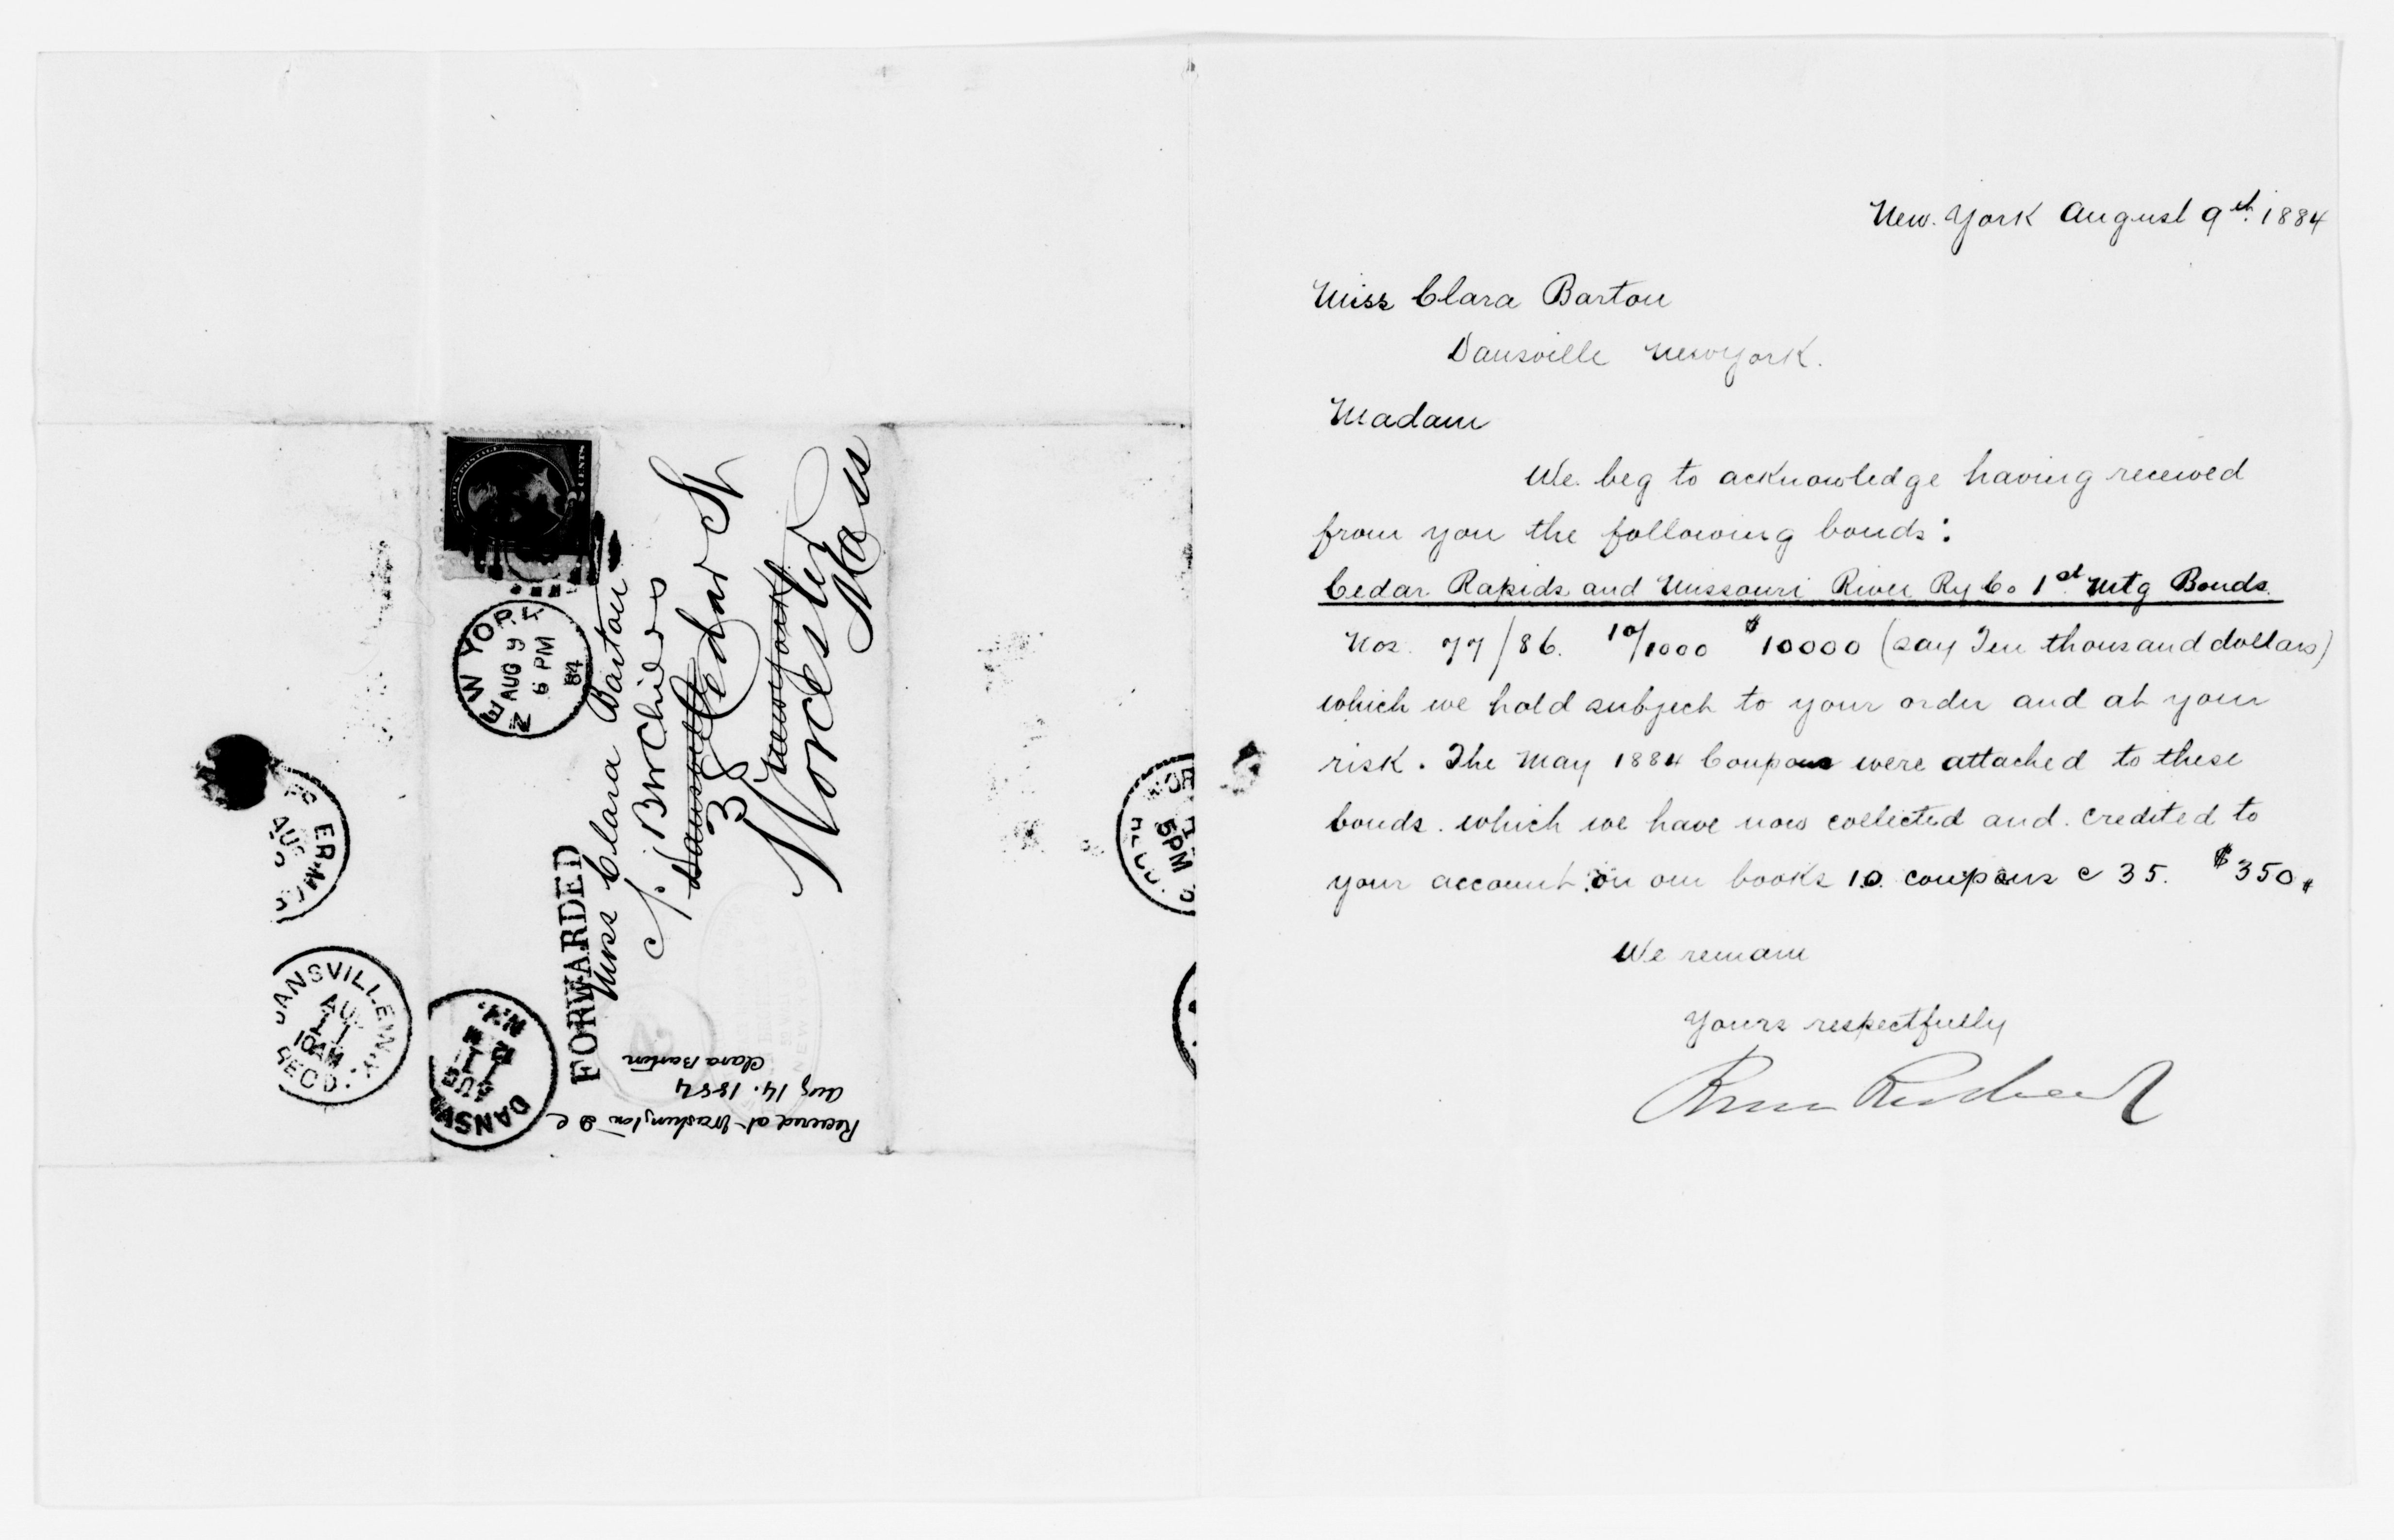 NEW YORK
AUG 9
6 PM
84
2 CENTS
FORWARDED
Miss Clara Barton
BW Childs
Dansville
38 Cedar St
New York
Worcester
Mass
Received at Washington D C
Aug 14. 1884
Clara Barton
DANSVILLE N.Y.
AUG
11
10 AM
REC'D.
DANSV
AUG
11
N.Y.
5 PM
New. York August 9th. 1884
Miss Clara Barton
Dansville New York.
Madam
We beg to acknowledge having received
from you the following bonds:
Cedar Rapids and Missouri River Ry Co 1st Mtg Bonds.
Nos. 77/86. 10/1000 $10000 (say Ten thousand dollars)
which we hold subject to your order and at your
risk. The May 1884 Coupons were attached to these
bonds. which we have now collected and. credited to
your account on our books 10 coupons c 35. $350.
We remain
Yours respectfully